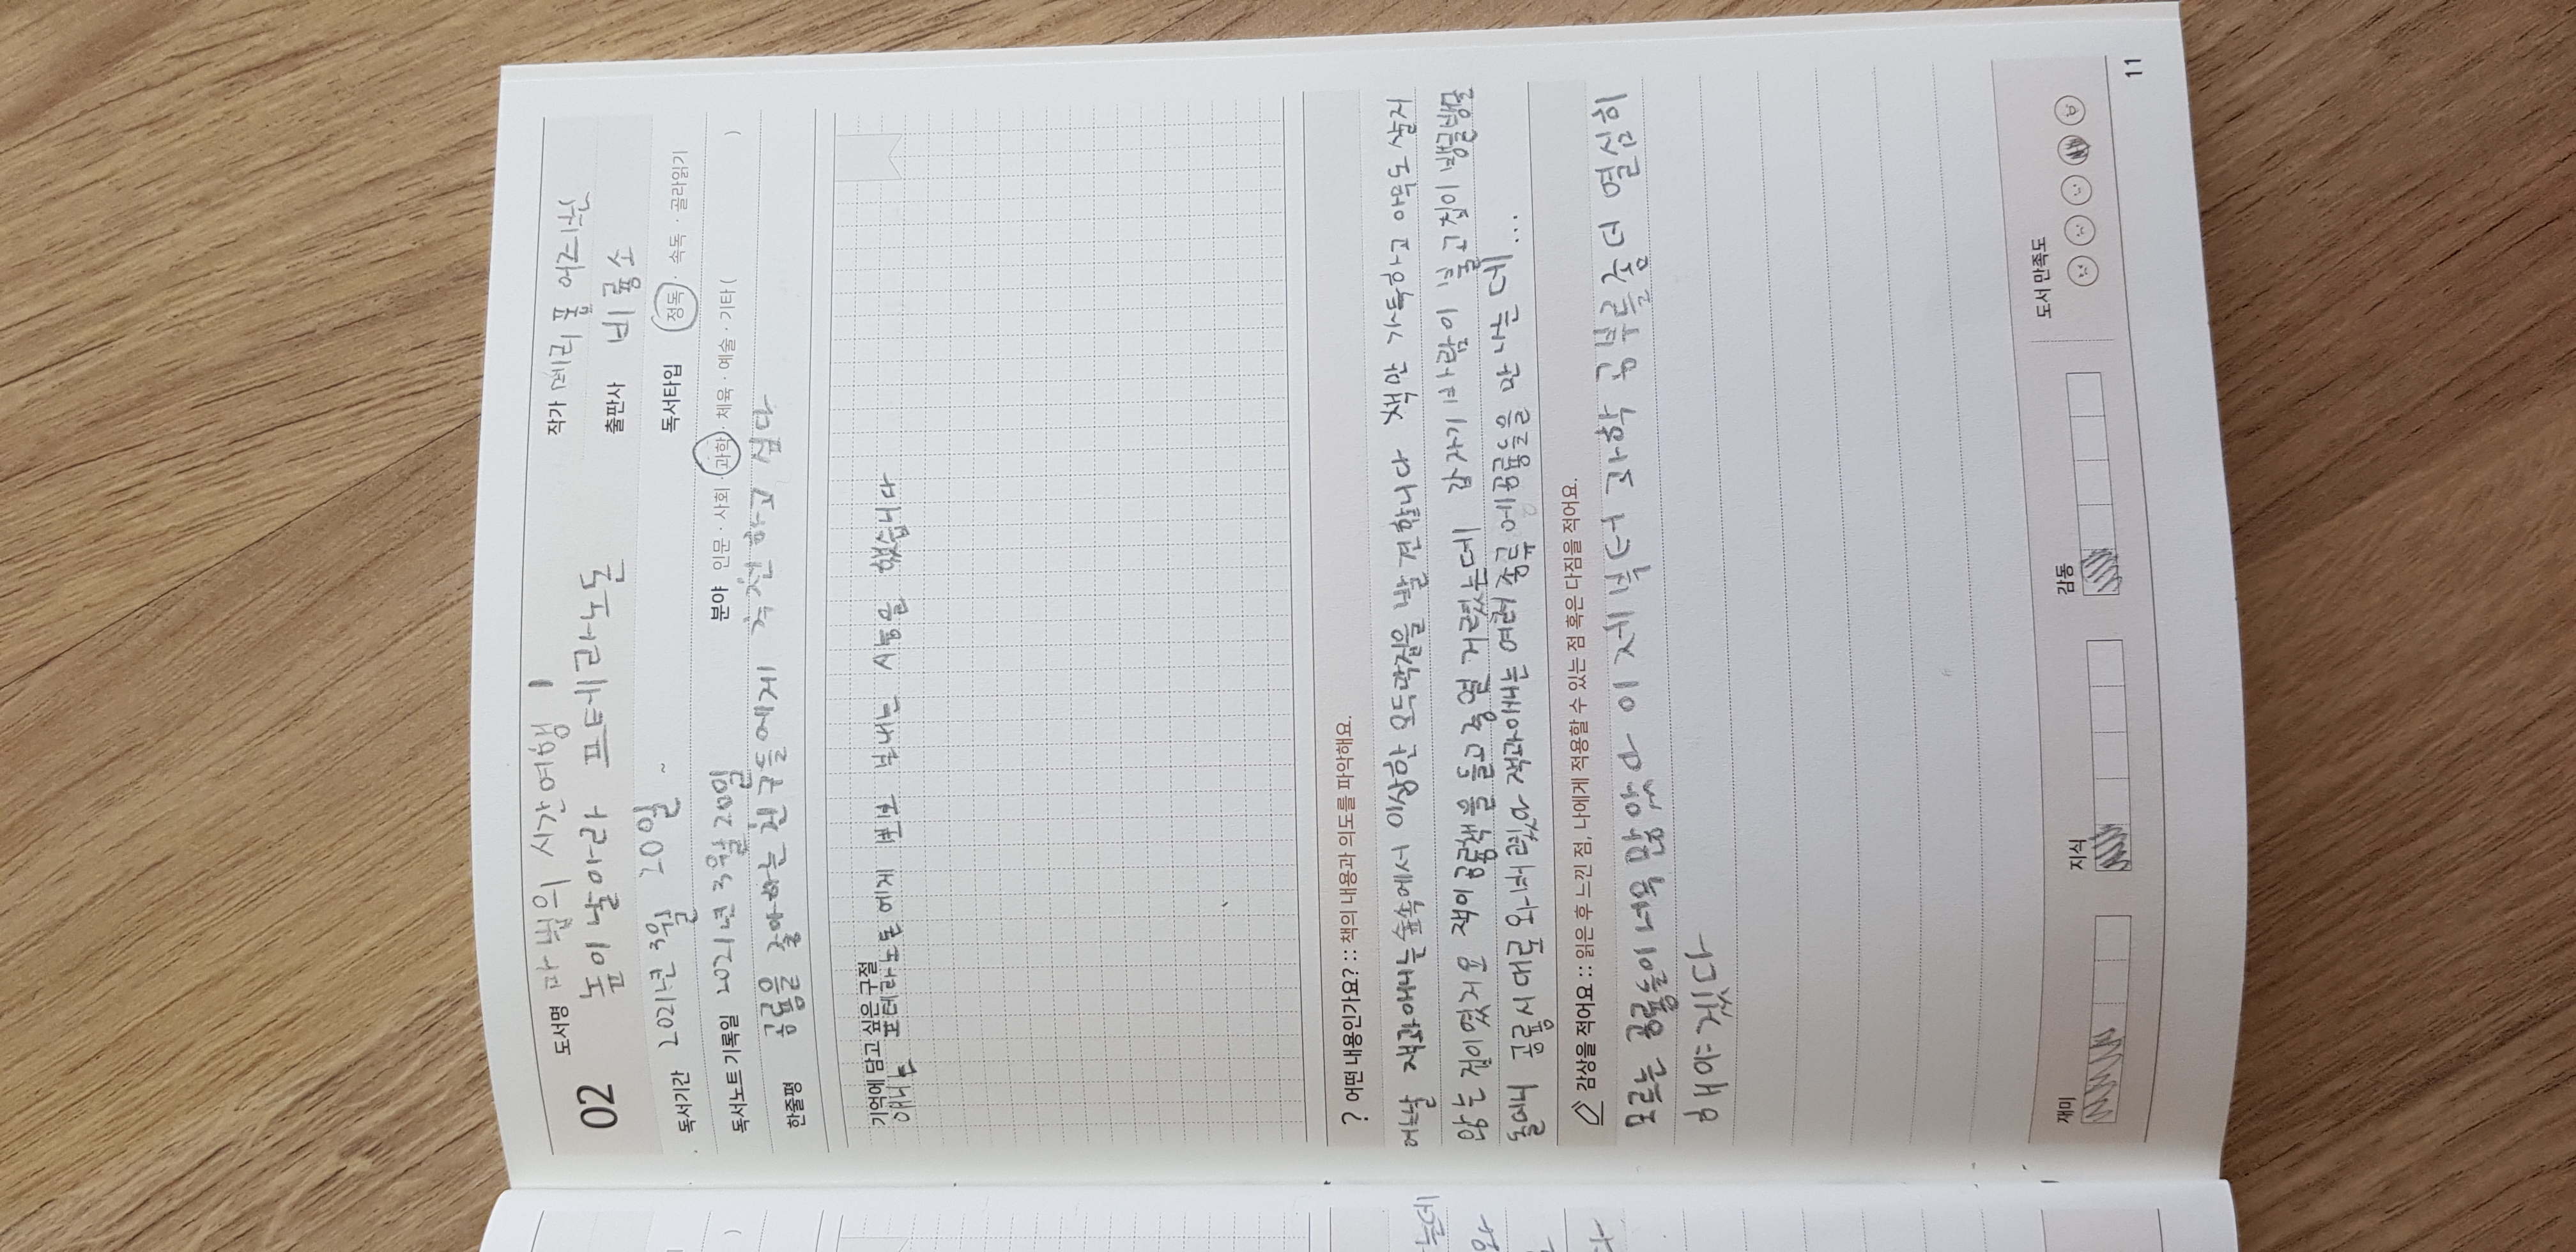 02 도서명 마법의 시간여행 1
높이 날아라 프테라노돈
작가 메리 폽 어즈번
출판사 비룡소
독서기간 2021년 3월 20일 ~
독서타입 정독 · 속독 · 골라읽기
독서노트 기록일 2021년 3월 20일
분야 인문 · 사회 · 과학 · 체육 · 예술 · 기타 ( )
한줄평 공룡을 좋아하는 친구들에게 추천하고 싶다
기억에 담고 싶은 구절
애니는 프테라노돈에게 뽀뽀 보내는 시늉을 했습니다
? 어떤 내용인가요? :: 책의 내용과 의도를 파악해요.
어느날 잭과애니는 숲속에서 이상한 오두막집을 발견합니다 책만 가득하고 아무도 살지
않는 집이였지요 잭이 공룡책을 들고 중얼거렸는데 갑자기 바람이 불고 집이 뱅글뱅글
돌더니 공룡시대로 와버렸다 잭과애니는 여러 종류에 공룡들을 만나는데...
감상을 적어요 :: 읽은 후 느낀 점, 나에게 적용할 수 있는 점 혹은 다짐을 적어요.
모르는 공룡들이 너무 많았다 이제부터 과학 공부를좀더 열심히
해야겠다
재미
지식
감동
도서 만족도
11
는데
와
다
)